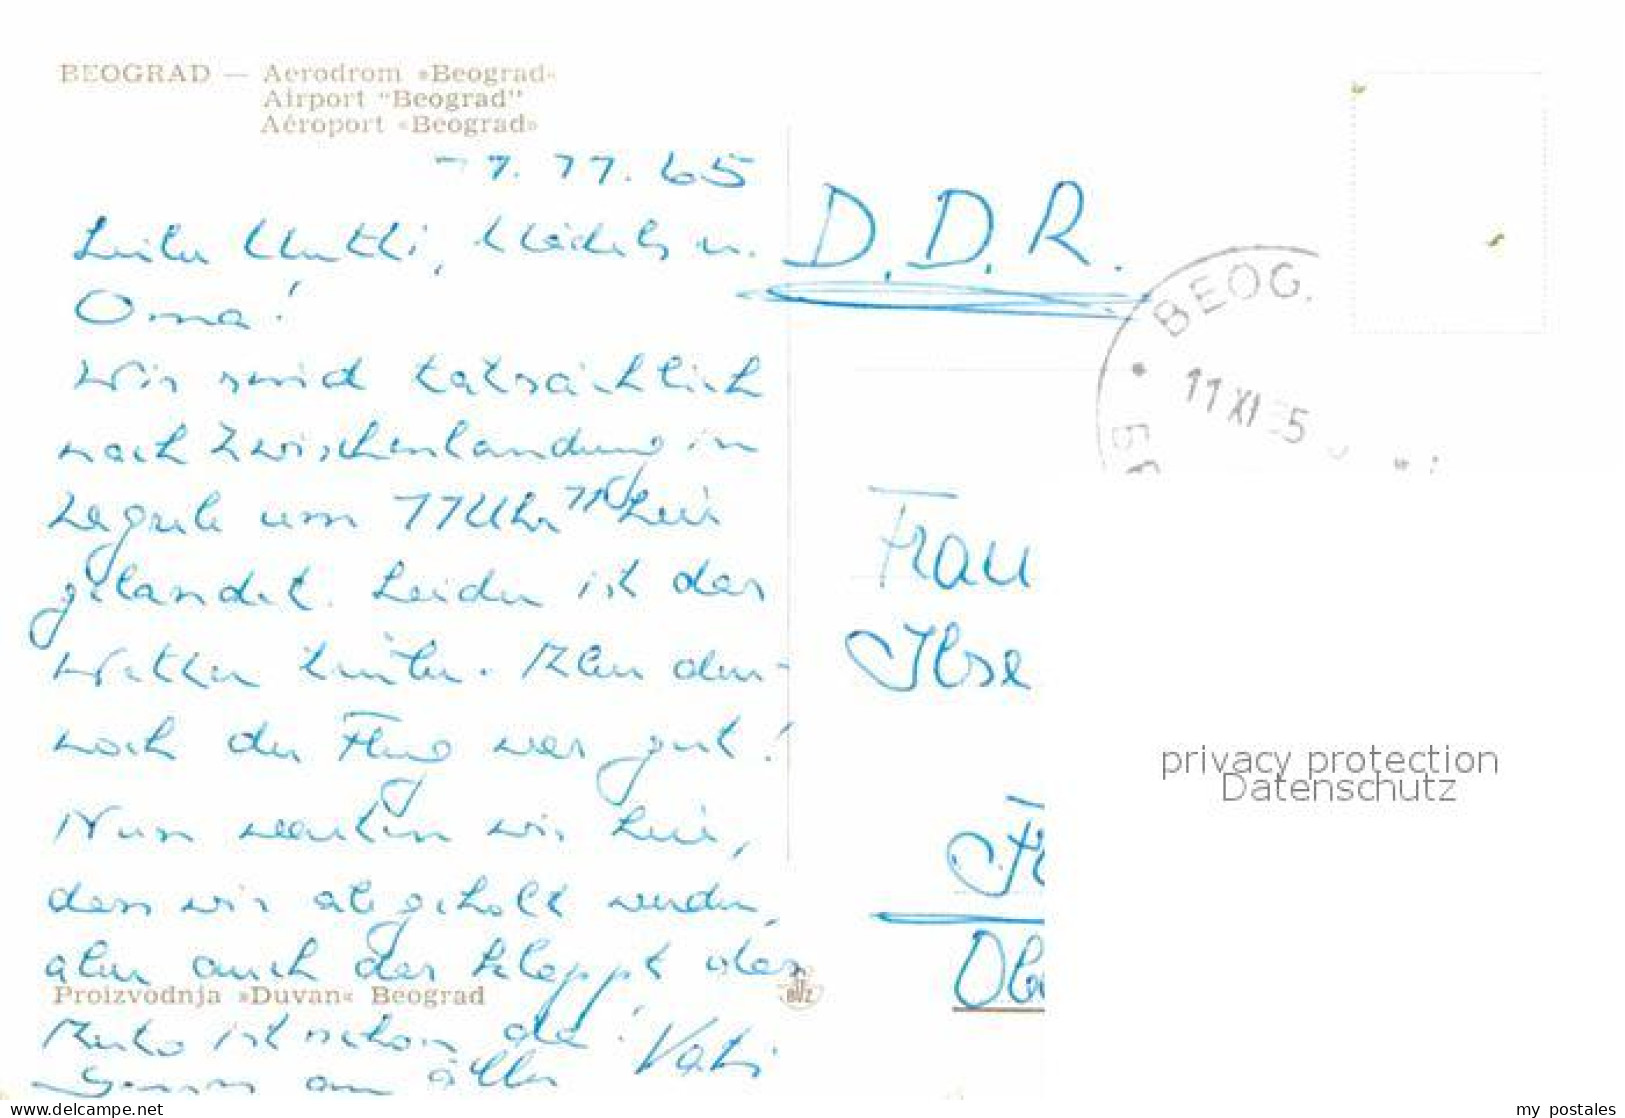 BEOGRAD — Aerodrom »Beograd«
Airport “Beograd”
Aéroport «Beograd»
11. 65
Liebe Mutti, Mädels u.
Oma!
Wir sind tatsächlich
nach Zwischenlandung in
Zagreb um 11 Uhr hier
gelandet. Leider ist das
Wetter trübe. Aber den-
noch der Flug war gut!
Nun warten wir hier,
dass wir abgeholt werden,
aber auch das kleppt das
Auto ist schon da! Vati
an alle
Proizvodnja »Duvan« Beograd
BVZ
D.D.R.
BEOG.
11 XI 5
Frau
Ilse
Fr
Ob
privacy protection
Datenschutz
www.delcampe.net
my_postales